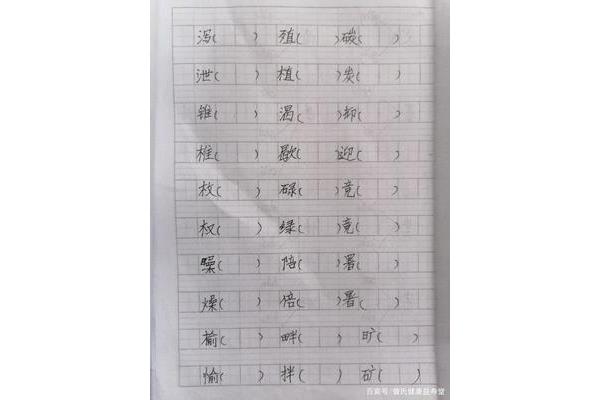 泻( ) 殖( )碳( )
泄( ) 植( )炭( )
锥( ) 渴( )卸( )
椎( ) 歇( )迎( )
枚( ) 碌( )竞( )
权( ) 绿( )竟( )
噪( ) 陪( )署( )
燥( ) 倍( )暑( )
榆( ) 畔( ) 旷( )
愉( ) 拌( ) 矿( )
百家号/曾氏健康益寿堂